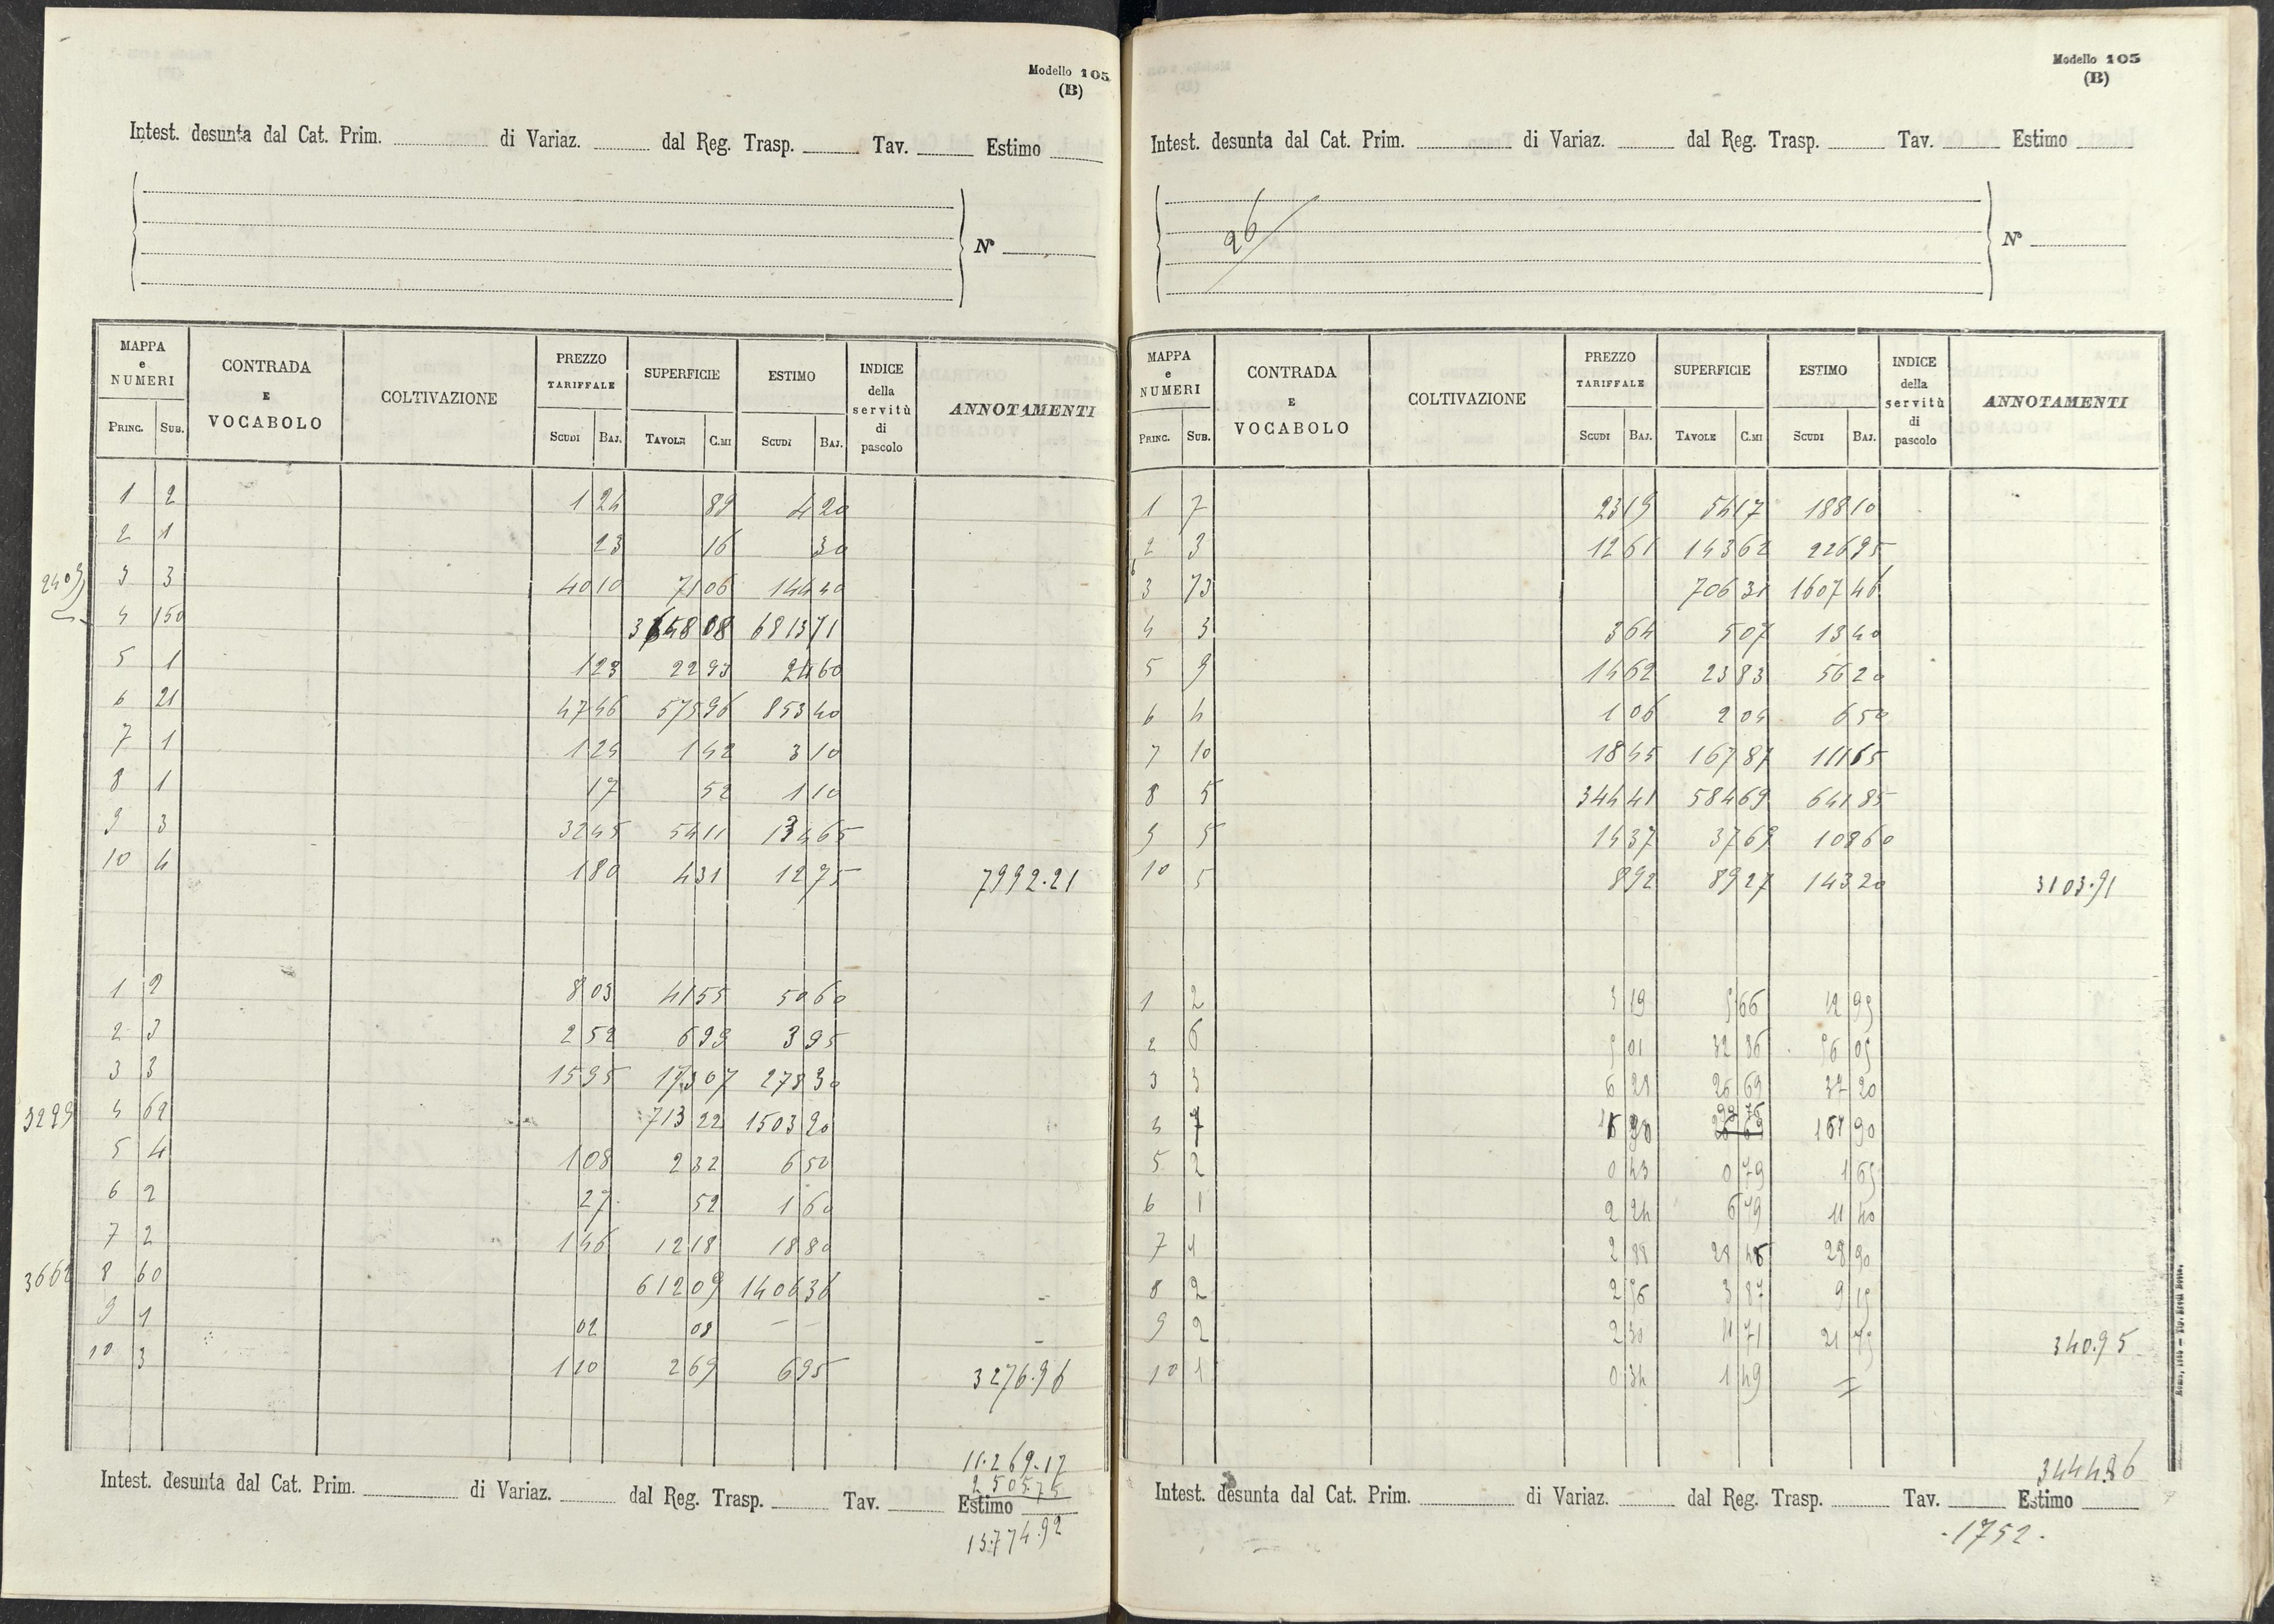 Modello 105
(B)
Intest. desunta dal Cat. Prim. di Variaz. dal Reg. Trasp. Tav. Estimo
N°
MAPPA e NUMERI CONTRADA E VOCABOLO COLTIVAZIONE PREZZO TARIFFALE SUPERFICIE ESTIMO INDICE della servitù di pascolo ANNOTAMENTI
PRINC. SUB. SCUDI BAJ. TAVOLE C.MI SCUDI BAJ.
1 2 1 24 89 4 20
2 1 23 16 30
3 3 40 10 71 06 144 40
4 150 08 6813 71
5 1 1 23 22 93 24 60
6 21 47 46 575 96 853 40
7 1 1 24 1 42 3 10
8 1 17 52 1 10
9 3 32 45 54 11 65
10 4 1 80 4 31 12 75 7992.21
1 2 8 03 41 55 50 60
2 3 2 52 6 99 3 95
3 3 15 95 173 07 278 30
3299 4 62 713 22 1503 20
5 4 1 08 2 32 6 50
6 2 27 52 1 60
7 2 1 46 12 18 18 80
8 60 612 09 1406 36
9 1 02 08 — —
10 3 1 10 2 69 6 95 3276.96
11.269.17
2505.75
Intest. desunta dal Cat. Prim. di Variaz. dal Reg. Trasp. Tav. Estimo
13.774.92
Modello 105
(B)
Intest. desunta dal Cat. Prim. di Variaz. dal Reg. Trasp. Tav. Estimo
26
N°
MAPPA e NUMERI CONTRADA E VOCABOLO COLTIVAZIONE PREZZO TARIFFALE SUPERFICIE ESTIMO INDICE della servitù di pascolo ANNOTAMENTI
PRINC. SUB. SCUDI BAJ. TAVOLE C.MI SCUDI BAJ.
1 7 23 19 54 17 188 10
2 3 12 61 143 62 226 95
3 73 706 31 1607 46
4 3 3 64 5 07 13 40
5 9 14 62 23 83 56 20
6 4 1 06 2 04 6 50
7 10 18 45 167 87 111 65
8 5 344 41 584 69 641 85
9 5 14 37 37 69 108 60
10 5 8 92 89 27 143 20 3103.91
1 2 3 19 5 66 12 95
2 6 5 01 32 36 56 05
3 3 6 28 26 69 37 20
4 7 90
5 2 0 43 0 79 1 65
6 1 2 24 6 79 11 40
7 1 2 88 28 46 28 90
8 2 2 56 3 87 9 15
9 2 2 30 11 71 21 75 340.95
10 1 0 34 1 49 =
3444.86
Intest. desunta dal Cat. Prim. di Variaz. dal Reg. Trasp. Tav. Estimo
-1752-